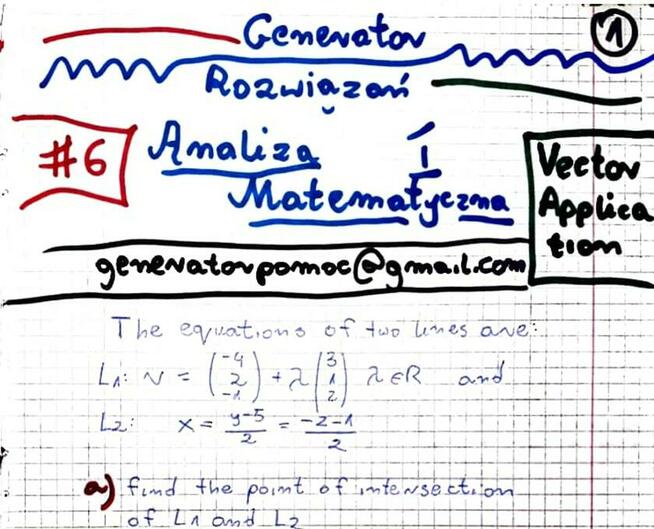 Generator
1
Rozwiązań
#6
Analiza I
Matematyczna
Vector
Application
generatorpomoc@gmail.com
The equations of two lines are:
L1: r = (-4 2 -1) + λ (3 1 2) λ∈R and
L2: x = y-5/2 = -z-1/2
a) find the point of intersection
of L1 and L2